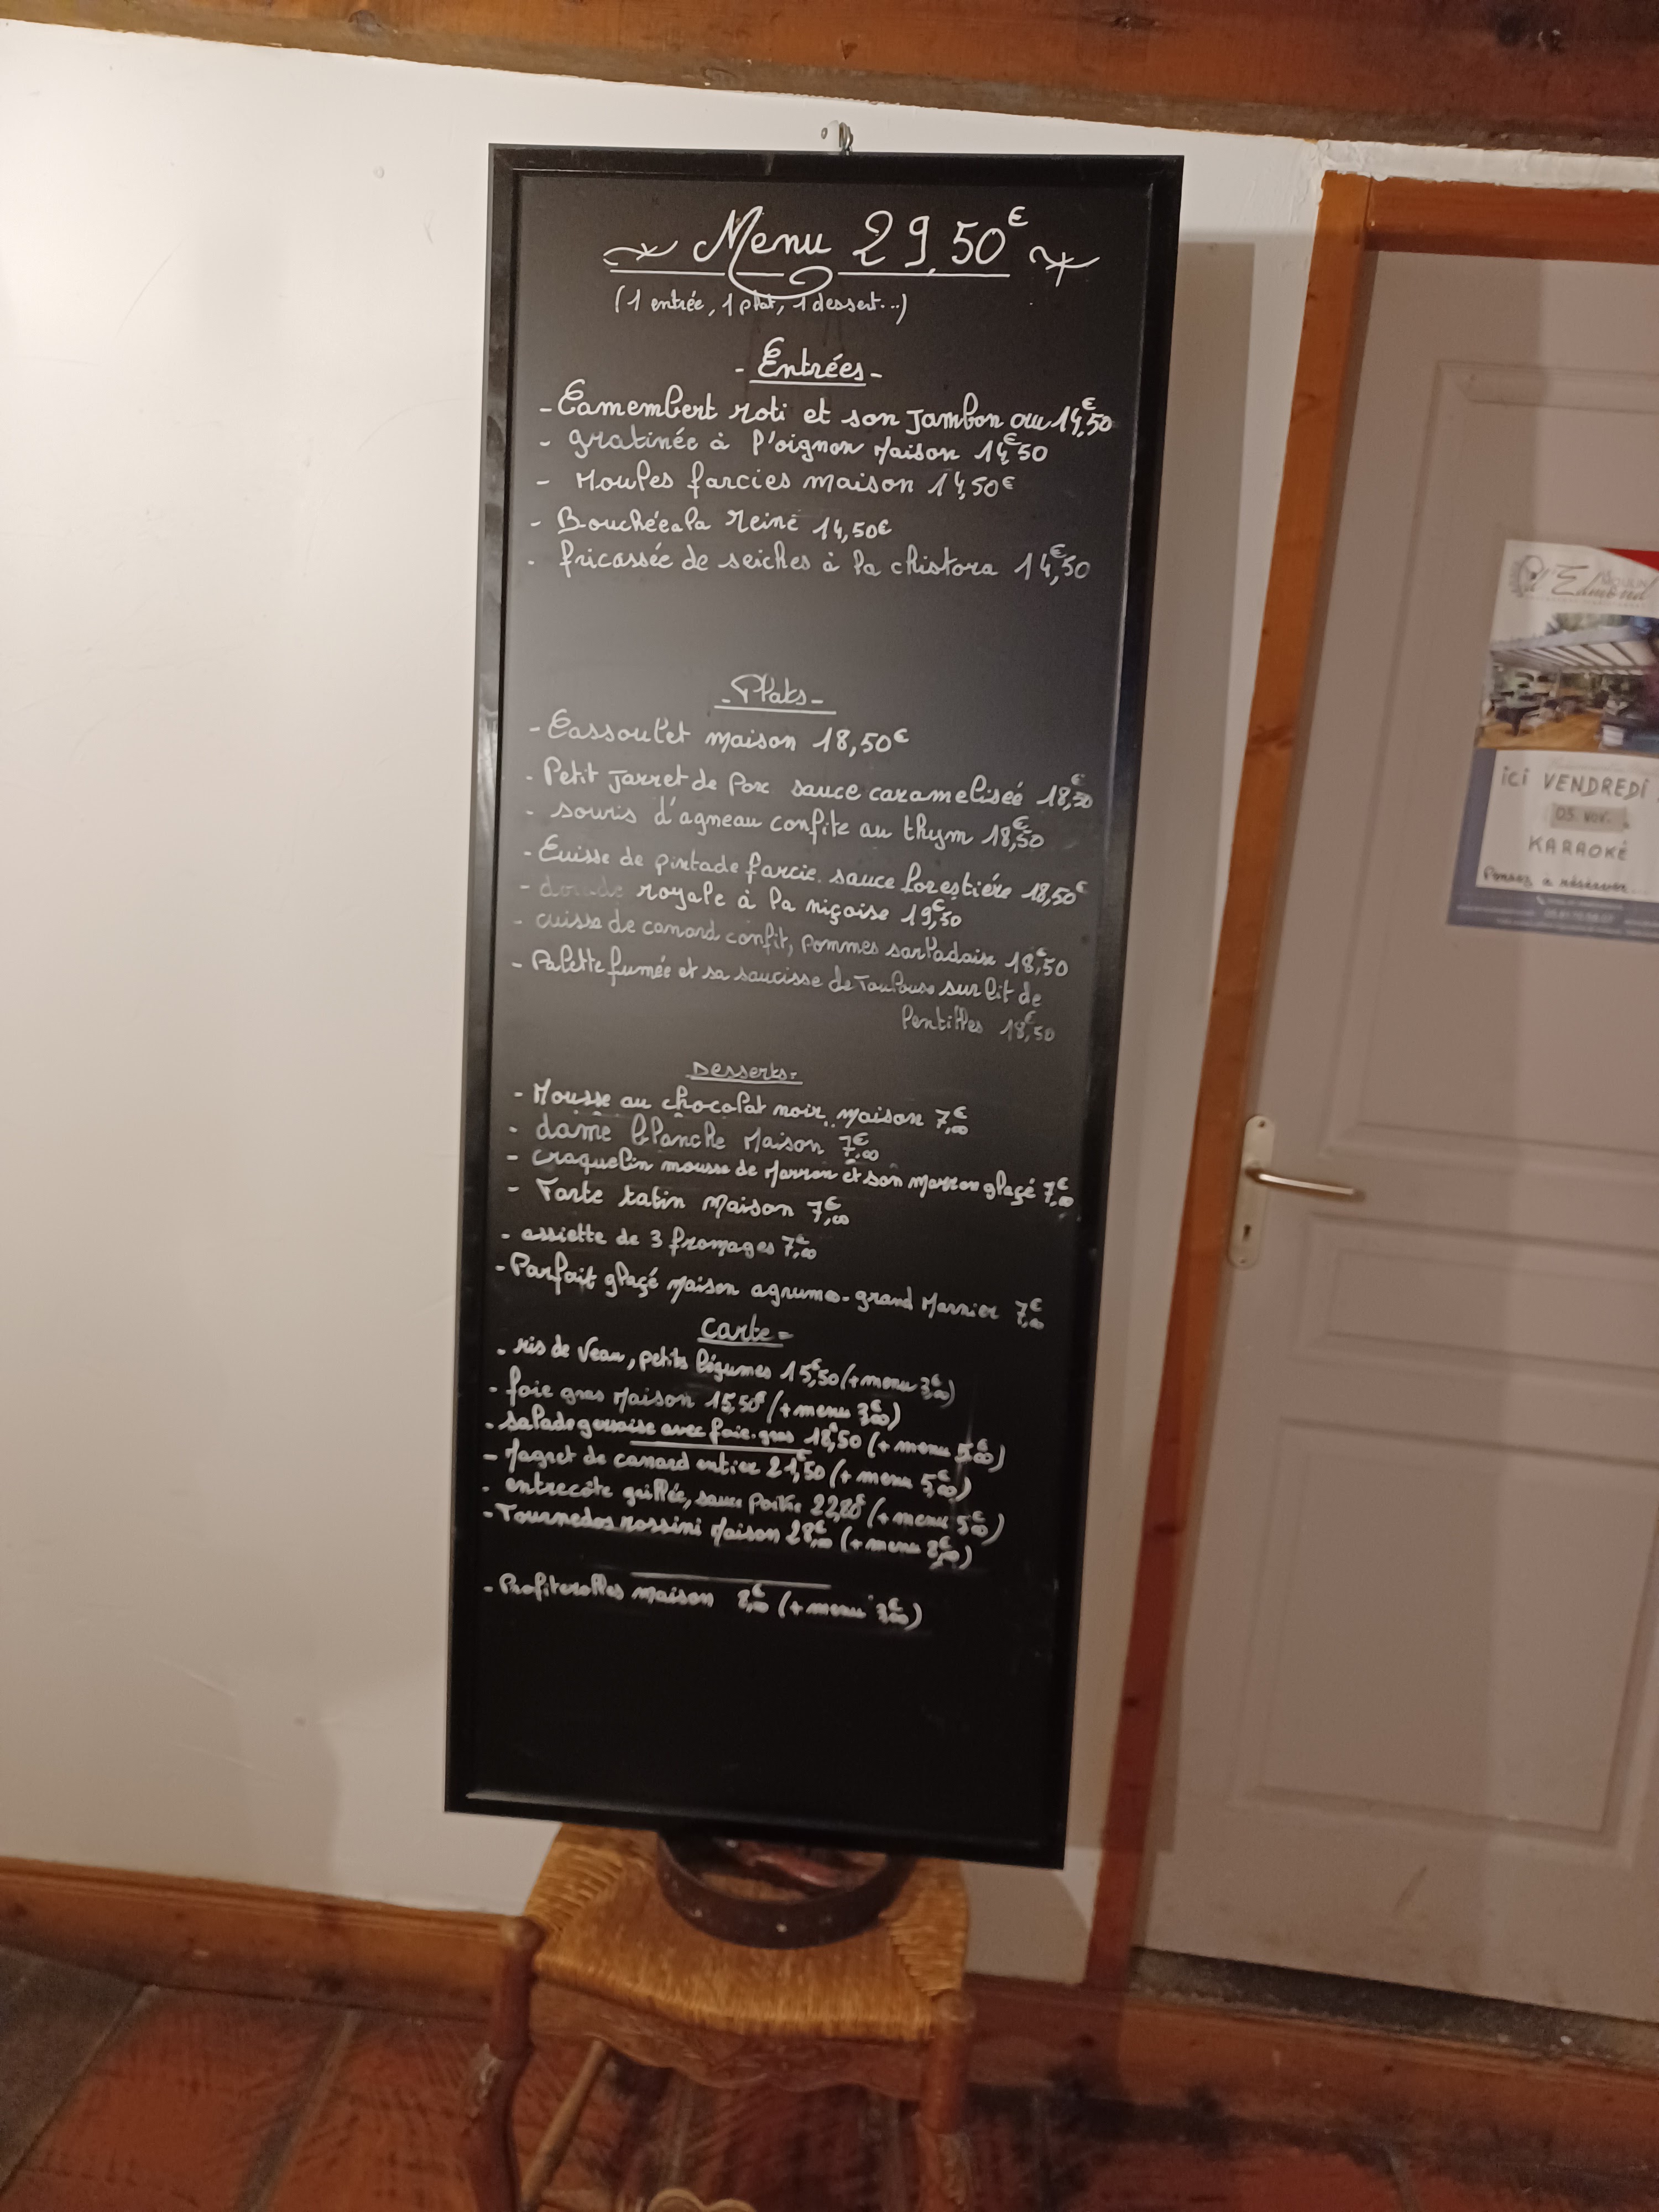 Menu 29,50€
(1 entrée, 1 plat, 1 dessert...)
- Entrées -
- Camembert roti et son Jambon cru 14,50€
- gratinée à l'oignon Maison 14,50€
- Moules farcies maison 14,50€
- Bouchée a la reine 14,50€
- fricassée de seiches à la chistora 14,50€
- Plats -
- Cassoulet maison 18,50€
- Petit Jarret de Porc sauce caramelisée 18,50€
- souris d'agneau confite au thym 18,50€
- Cuisse de pintade farcie. sauce forestière 18,50€
- dorade royale à la niçoise 19,50€
- cuisse de canard confit, pommes sarladaise 18,50€
- Palette fumée et sa saucisse de Toulouse sur lit de
lentilles 18,50€
Desserts-
- Mousse au chocolat noir maison 7,00€
- dame blanche Maison 7,00€
- craquelin mousse de Marron et son marron glaçé 7,00€
- Tarte tatin Maison 7,00€
- assiette de 3 fromages 7,00€
- Parfait glaçé Maison agrume-grand Marnier 7,00€
Carte=
- ris de Veau, petits légumes 15,50€ (+ menu 3,00€)
- foie gras Maison 15,50€ (+ menu 3,00€)
- salade gersoise avec foie-gras 18,50€ (+ menu 5,00€)
- Magret de canard entier 21,50€ (+ menu 5,00€)
- entrecôte grillée, sauce 22,80€ (+ menu 5,00€)
- Tournedos rossini Maison 28,00€ (+ menu 8,00€)
- Profiterolles maison 8,00€ (+ menu 3,00€)
MOULIN
d'Edmond
ici VENDREDI
05 Nov.
KARAOKÉ
Pensez a réserver...